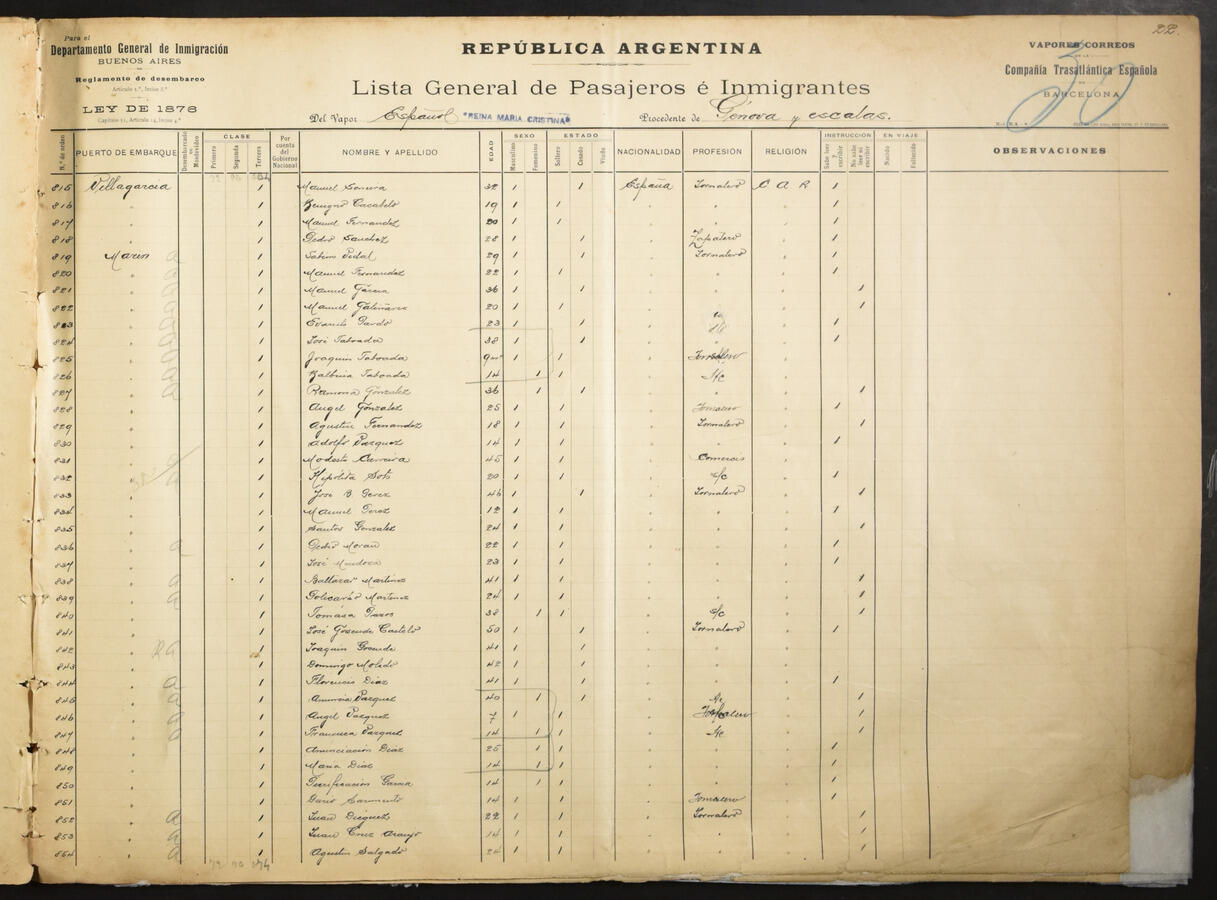 22.
Para el
Departamento General de Inmigración
BUENOS AIRES
Reglamento de desembarco
Artículo 1.°, Inciso 8.°
LEY DE 1876
Capítulo 51, Artículo 14, Inciso 4.°
REPÚBLICA ARGENTINA
Lista General de Pasajeros é Inmigrantes
Del Vapor Español "REINA MARIA CRISTINA" Procedente de Génova y escalas.
VAPORES CORREOS
DE LA
Compañía Trasatlántica Española
BARCELONA
N.° de orden PUERTO DE EMBARQUE Desembarcado en Montevideo CLASE Primera Segunda Tercera Por cuenta del Gobierno Nacional NOMBRE Y APELLIDO EDAD SEXO Masculino Femenino ESTADO Soltero Casado Viudo NACIONALIDAD PROFESIÓN RELIGIÓN INSTRUCCIÓN Sabe leer y escribir No sabe leer ni escribir EN VIAJE Nacido Fallecido OBSERVACIONES
815 Villagarcia / Manuel 32 / / España Jornalero C A R /
816 " / Benigno 19 / / " " " /
817 " / Manuel Fernandez 20 / / " " " /
818 " / Pedro Sanchez 28 / / " Zapatero " /
819 Marin / Sabino 29 / / " Jornalero " /
820 " / Manuel Fernandez 22 / / " " " /
821 " / Manuel Garcia 36 / / " " " /
822 " / Manuel 20 / / " " " /
823 " / Pardo 23 / / " " /
824 " / José Taboada 38 / / " " /
825 " / Joaquin Taboada / / " Jornalero "
826 " / Balbina Taboada 14 / / " s/c "
827 " / Ramona Gonzalez 36 / / " " " /
828 " / Angel Gonzalez 25 / / " Jornalero " /
829 " / Agustin Fernandez 18 / / " Jornalero " /
830 " / Adolfo 14 / / " " " /
831 " / Modesto Carreira 45 / / " Comercio "
832 " / Hipolita Soto 20 / / " s/c " /
833 " / José B Perez 46 / / " Jornalero " /
834 " / Manuel Perez 12 / / " " " /
835 " / Santos Gonzalez 24 / / " " " /
836 " / Pedro Moran 22 / / " " " /
837 " / José Mendoza 23 / / " " " /
838 " / Baltazar Martinez 41 / / " " " /
839 " / Policarpo Martinez 24 / / " " " /
840 " / Tomasa Pazos 38 / / " s/c " /
841 " / José Gosende Castelo 50 / / " Jornalero " /
842 " / Joaquin Gosende 41 / / " " "
843 " / Domingo Moledo 42 / / " " "
844 " / Florencio Diaz 41 / / " " " /
845 " / Anuncia 40 / " s/c " /
846 " / Angel 7 / / " " /
847 " / Francisca 14 / / " s/c " /
848 " / Anunciacion Diaz 25 / / " " " /
849 " / Maria Diaz 14 / / " " " /
850 " / Purificacion Garcia 14 / / " " " /
851 " / Dario Sarmiento 14 / / " Jornalero " /
852 " / Juan Dieguez 22 / / " Jornalero " /
853 " / Juan Cruz Araujo 14 / / " " " /
854 " / Agustin Salgado 24 / / " " " /